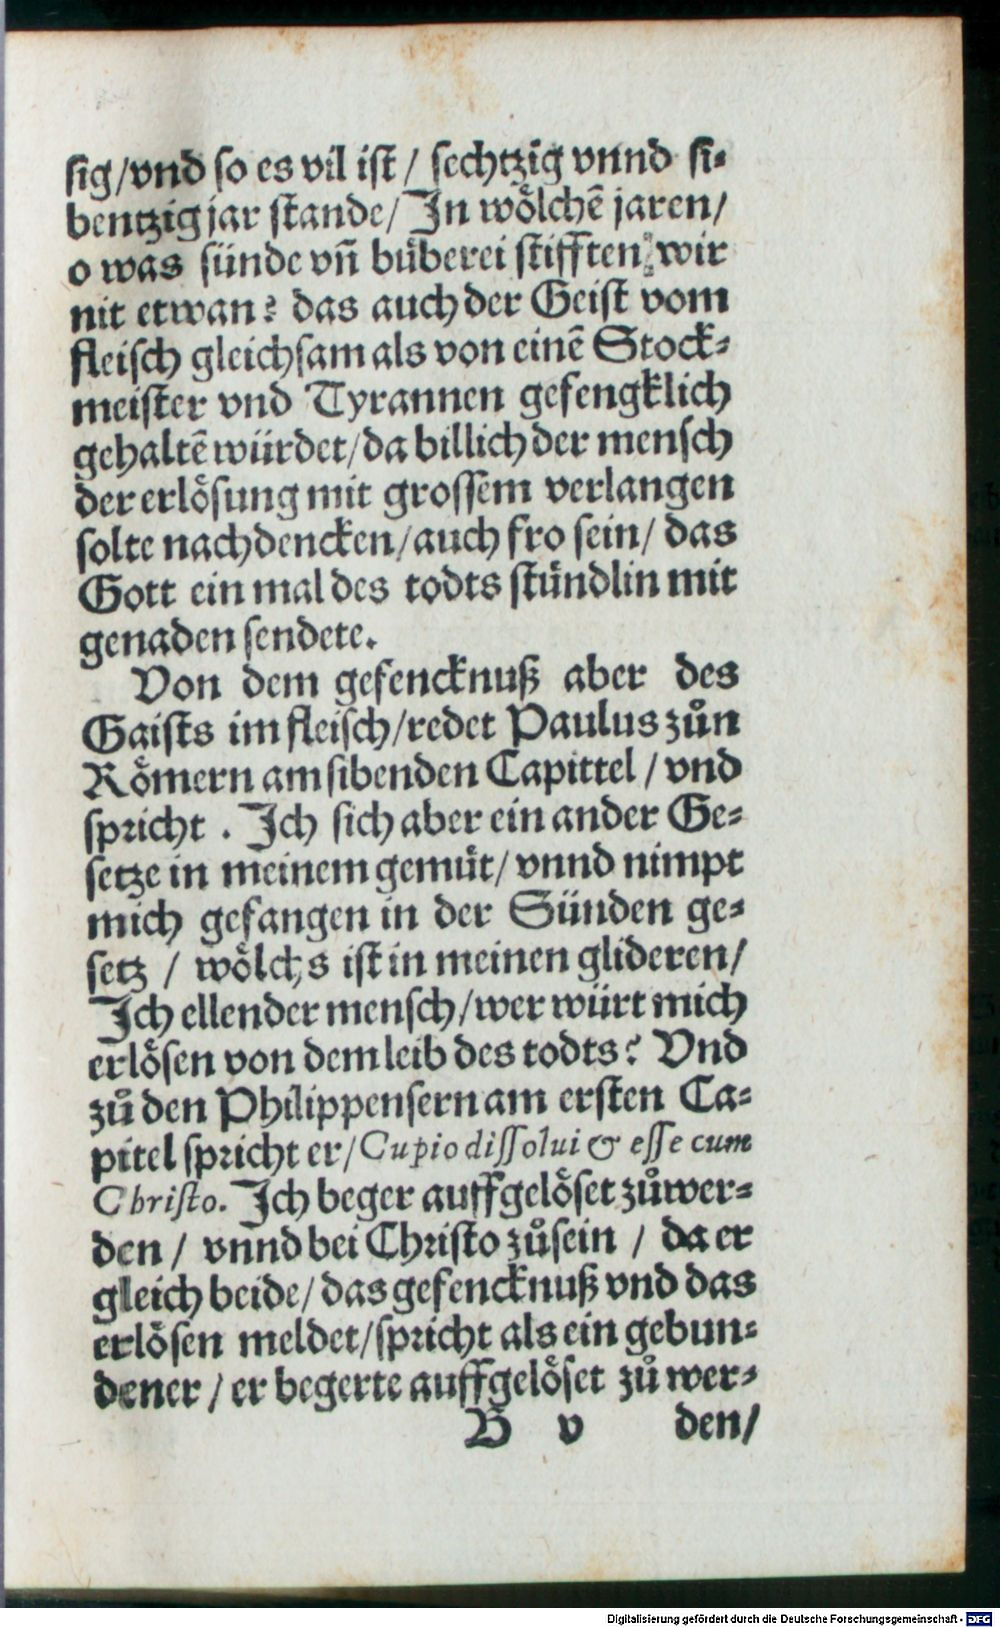 sig/vnd so es vil ist/ sechtzig vnnd si⸗
bentzig jar stande/ In wo̊lchē jaren/
o was sünde vn̄ bu̎berei stifften wir
nit etwan? das auch der Geist vom
fleisch gleichsam als von einē Stock⸗
meister vnd Tyrannen gefengklich
gehaltē würdet/da billich der mensch
der erlösung mit grossem verlangen
solte nachdencken/auch fro sein/ das
Gott ein mal des todts stündlin mit
genaden sendete.
Von dem gefencknuß aber des
Gaists im fleisch/redet Paulus zůn
Römern am sibenden Capittel/vnd
spricht. Ich sich aber ein ander Ge⸗
setze in meinem gemüt/vnnd nimpt
mich gefangen in der Sünden ge⸗
setz / wölchs ist in meinen glideren/
Ich ellender mensch/wer würt mich
erlösen von dem leib des todts? Vnd
zů den Philippensern am ersten Ca⸗
pitel spricht er/Cupio dissolui & esse cum
Christo. Ich beger auffgelöset zůwer⸗
den/ vnnd bei Christo zůsein / da er
gleich beide/das gefencknuß vnd das
erlösen meldet/spricht als ein gebun⸗
dener/er begerte auffgelöset zů wer⸗
B v den/
Digitalisierung gefördert durch die Deutsche Forschungsgemeinschaft - DFG